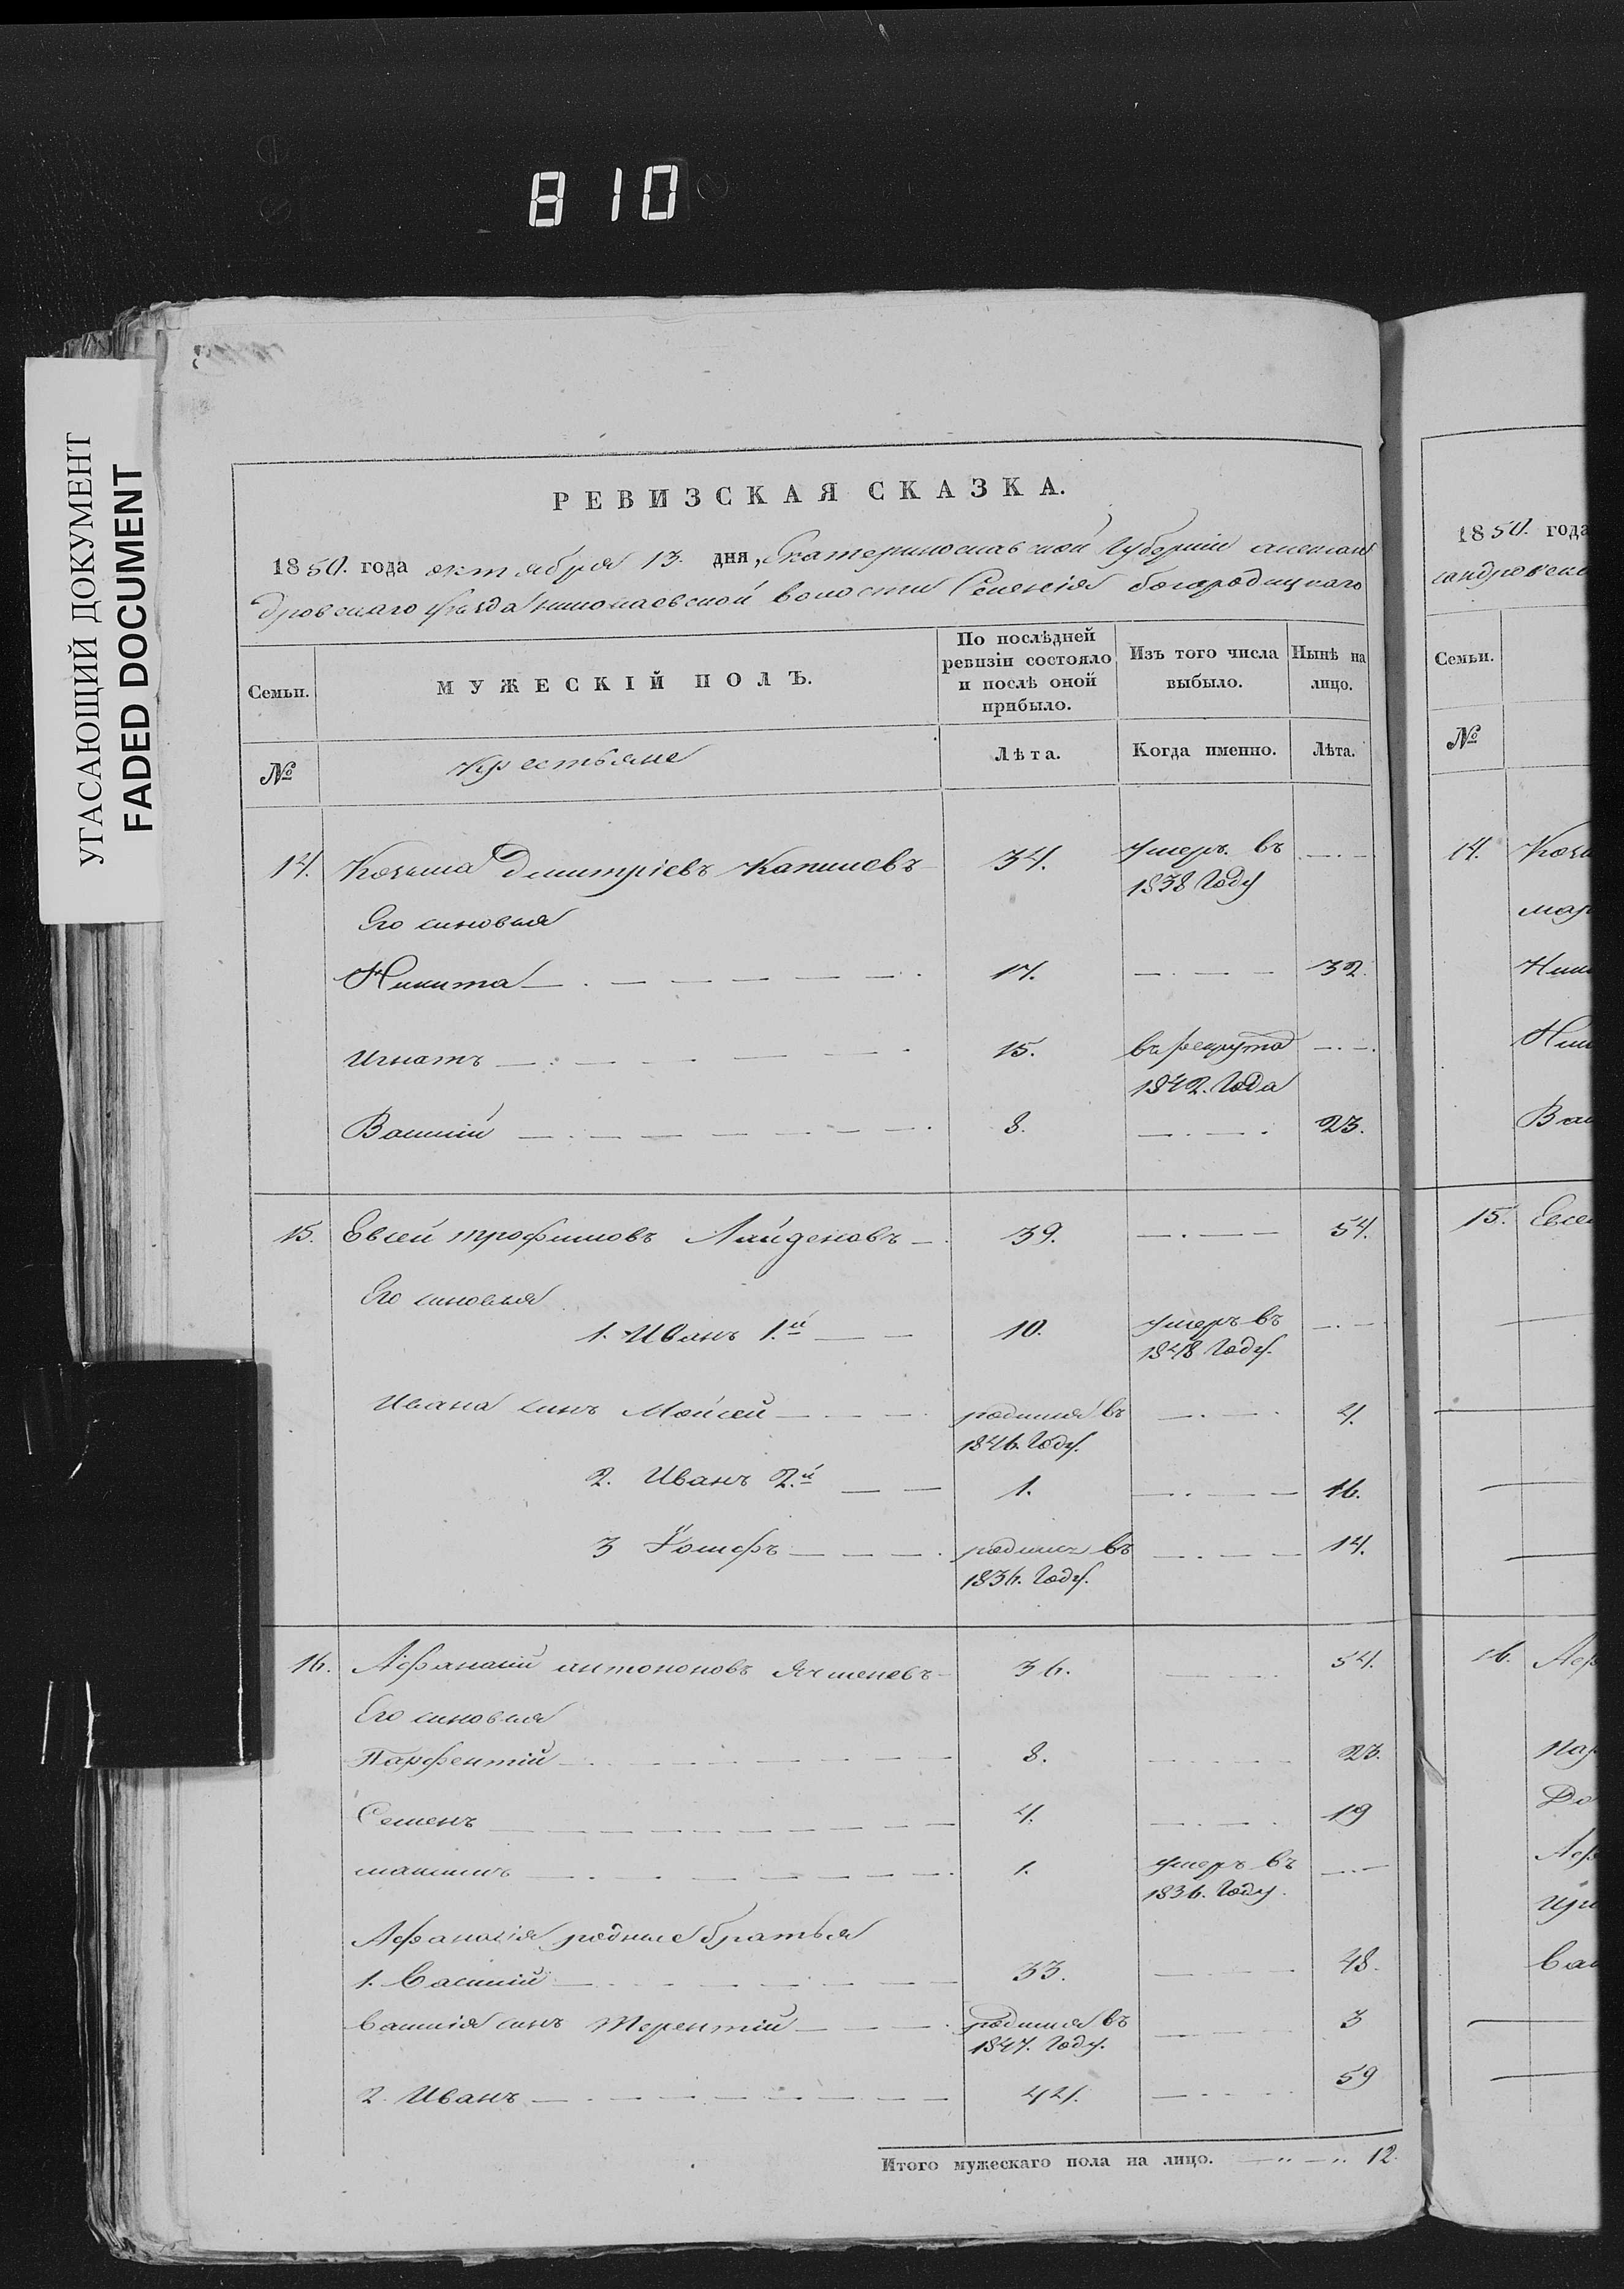 810
УГАСАЮЩИЙ ДОКУМЕНТ
FADED DOCUMENT
РЕВИЗСКАЯ СКАЗКА.
1850. года октября 13. дня, Екатеринославской Губерніи алексан
дровскаго уѣзда николаевской волости Селенія богородицкаго
Семьи.
МУЖЕСКІЙ ПОЛЪ.
По послѣдней ревизіи состояло и послѣ оной прибыло.
Изъ того числа выбыло.
Нынѣ на лицо.
№
крестьяне
Лѣта.
Когда именно.
Лѣта.
14. Козьма Дмитріевъ 34. умеръ. въ
1838 Году
Его синовья
Никита 17. 32.
Игнатъ 15. въ рекрута
1842. Года
Василій 8. 23.
15. Евсей трофимовъ 39. 54.
Его синовья
1. Иванъ 1.й 10. умеръ въ
1848 Году.
Ивана синъ Мойсей родился въ 4.
1846. Году.
2. Иванъ 2.й 1. 16.
3 Іосифъ родился въ 14.
1836. Году.
16. Афанасий антоновъ 36. 54.
Его синовья
Парфентій 8. 23.
Семенъ 4. 19
максимъ 1. умеръ въ
1836. Году.
Афанасія родные братья
1. Василій 33. 48.
Василія синъ Терентий родился въ 3
1847. Году.
2. Иванъ 44. 59
Итого мужескаго пола на лицо. 12.
1850. года
Семьи.
№
14.
15.
16.